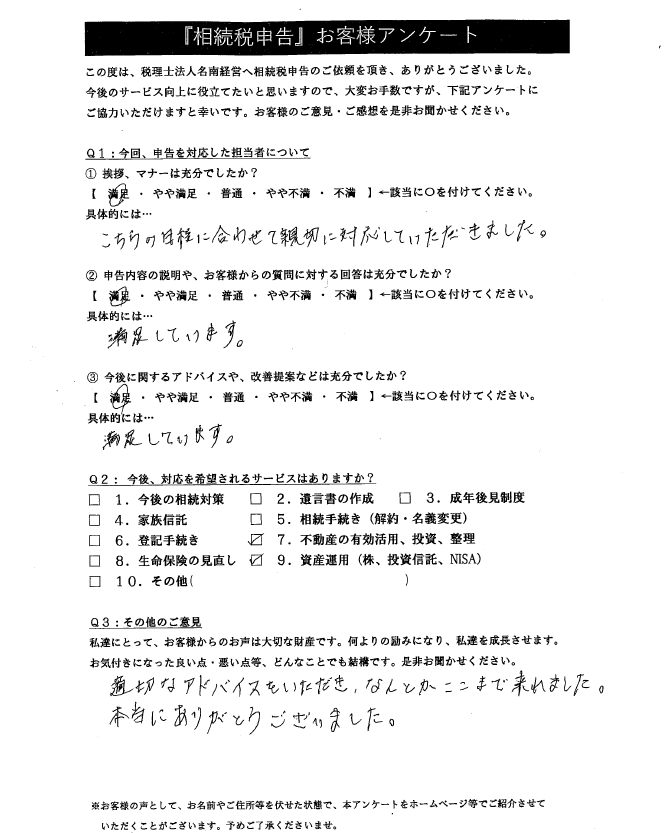 『相続税申告』お客様アンケート
この度は、税理士法人名南経営へ相続税申告のご依頼を頂き、ありがとうございました。
今後のサービス向上に役立てたいと思いますので、大変お手数ですが、下記アンケートに
ご協力いただけますと幸いです。お客様のご意見・ご感想を是非お聞かせください。
Q1：今回、申告を対応した担当者について
① 挨拶、マナーは充分でしたか？
【 満足 ・ やや満足 ・ 普通 ・ やや不満 ・ 不満 】←該当に○を付けてください。
具体的には…
こちらの日程に合わせて親切に対応していただきました。
② 申告内容の説明や、お客様からの質問に対する回答は充分でしたか？
【 満足 ・ やや満足 ・ 普通 ・ やや不満 ・ 不満 】←該当に○を付けてください。
具体的には…
満足しています。
③ 今後に関するアドバイスや、改善提案などは充分でしたか？
【 満足 ・ やや満足 ・ 普通 ・ やや不満 ・ 不満 】←該当に○を付けてください。
具体的には…
満足しています。
Q2： 今後、対応を希望されるサービスはありますか？
□ 1．今後の相続対策 □ 2．遺言書の作成 □ 3．成年後見制度
□ 4．家族信託 □ 5．相続手続き（解約・名義変更）
□ 6．登記手続き ☑ 7．不動産の有効活用、投資、整理
□ 8．生命保険の見直し ☑ 9．資産運用（株、投資信託、NISA）
□ 10．その他( )
Q3：その他のご意見
私達にとって、お客様からのお声は大切な財産です。何よりの励みになり、私達を成長させます。
お気付きになった良い点・悪い点等、どんなことでも結構です。是非お聞かせください。
適切なアドバイスをいただき、なんとかここまで来れました。
本当にありがとうございました。
※お客様の声として、お名前やご住所等を伏せた状態で、本アンケートをホームページ等でご紹介させて
いただくことがございます。予めご了承くださいませ。